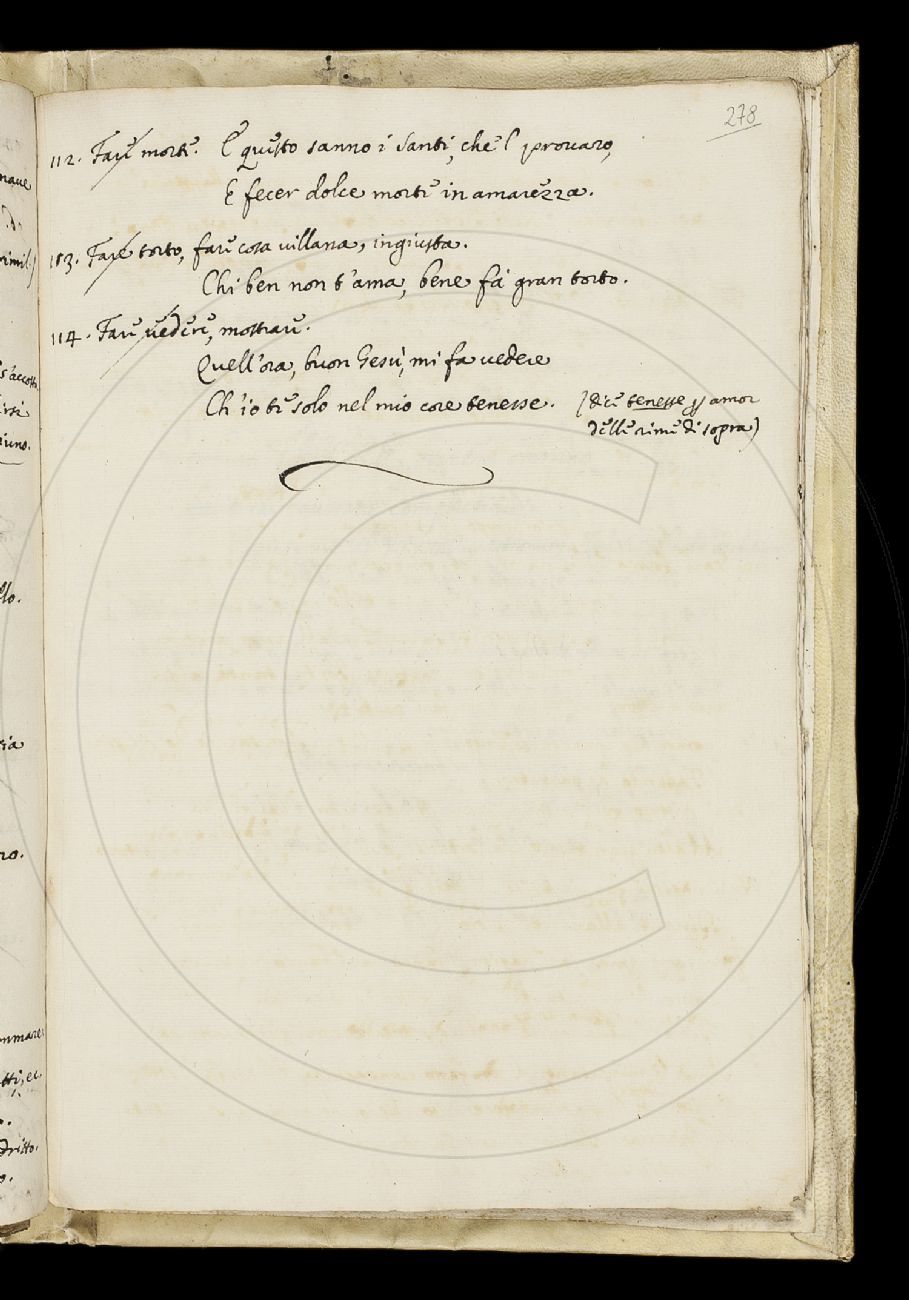 278
112. Fare morte. E questo sanno i Santi, che 'l provaro,
E fecer dolce morte in amarezza.
113. Fare torto, fare cosa villana, ingiusta.
Chi ben non t'ama, bene fà gran torto.
114. Fare vedere, mostrare.
Quell'ora, buon Gesù, mi fa vedere
Ch'io te solo nel mio core tenesse. (dice tenesse p amor
delle rime di sopra)
nave
simil.)
s'accosta
irsi
iuno.
llo.
ro.
mmare
tti, et
dritto.